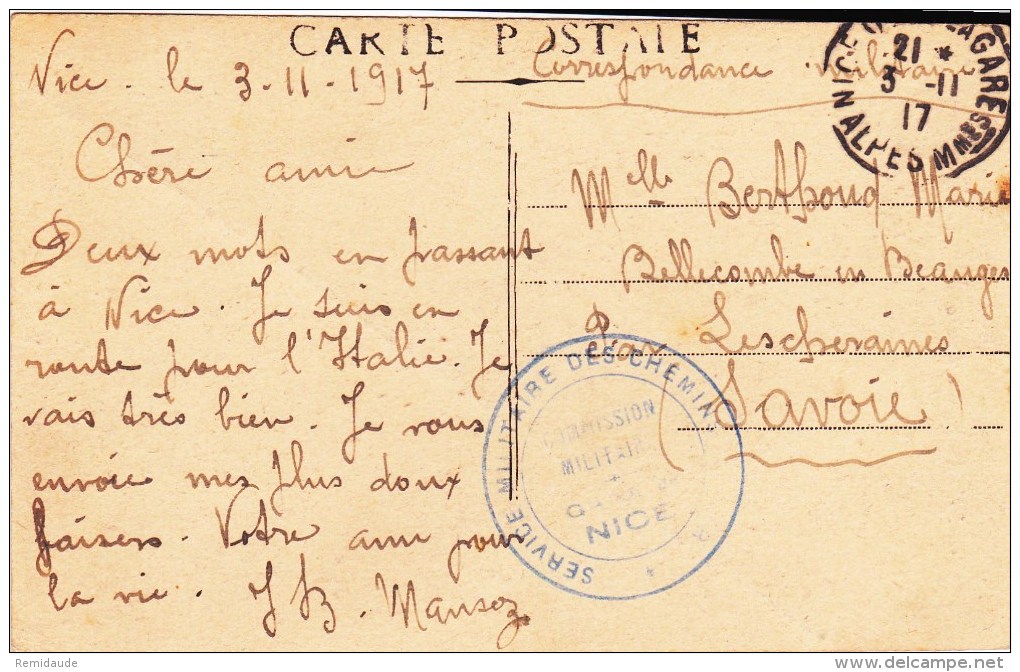 CARTE POSTALE
Nice. le 3-11-1917
Correspondance militaire
NICE GARE
21 *
3 -11
17
ALPES Mmes
Chére amie
Deux mots en passant
à Nice. Je suis en
route pour l'Italie. Je
vais très bien. Je vous
envoie mes plus doux
baisers. Votre ami pour
la vie. JB. Mansoz
Melle Berthoud Marie
Bellecombe en Beauges
Par Lescheraines
(Savoie)
SERVICE MILITAIRE DES CHEMINS
COMMISSION
MILITAIRE
NICE
Remidaude
delcampe.net